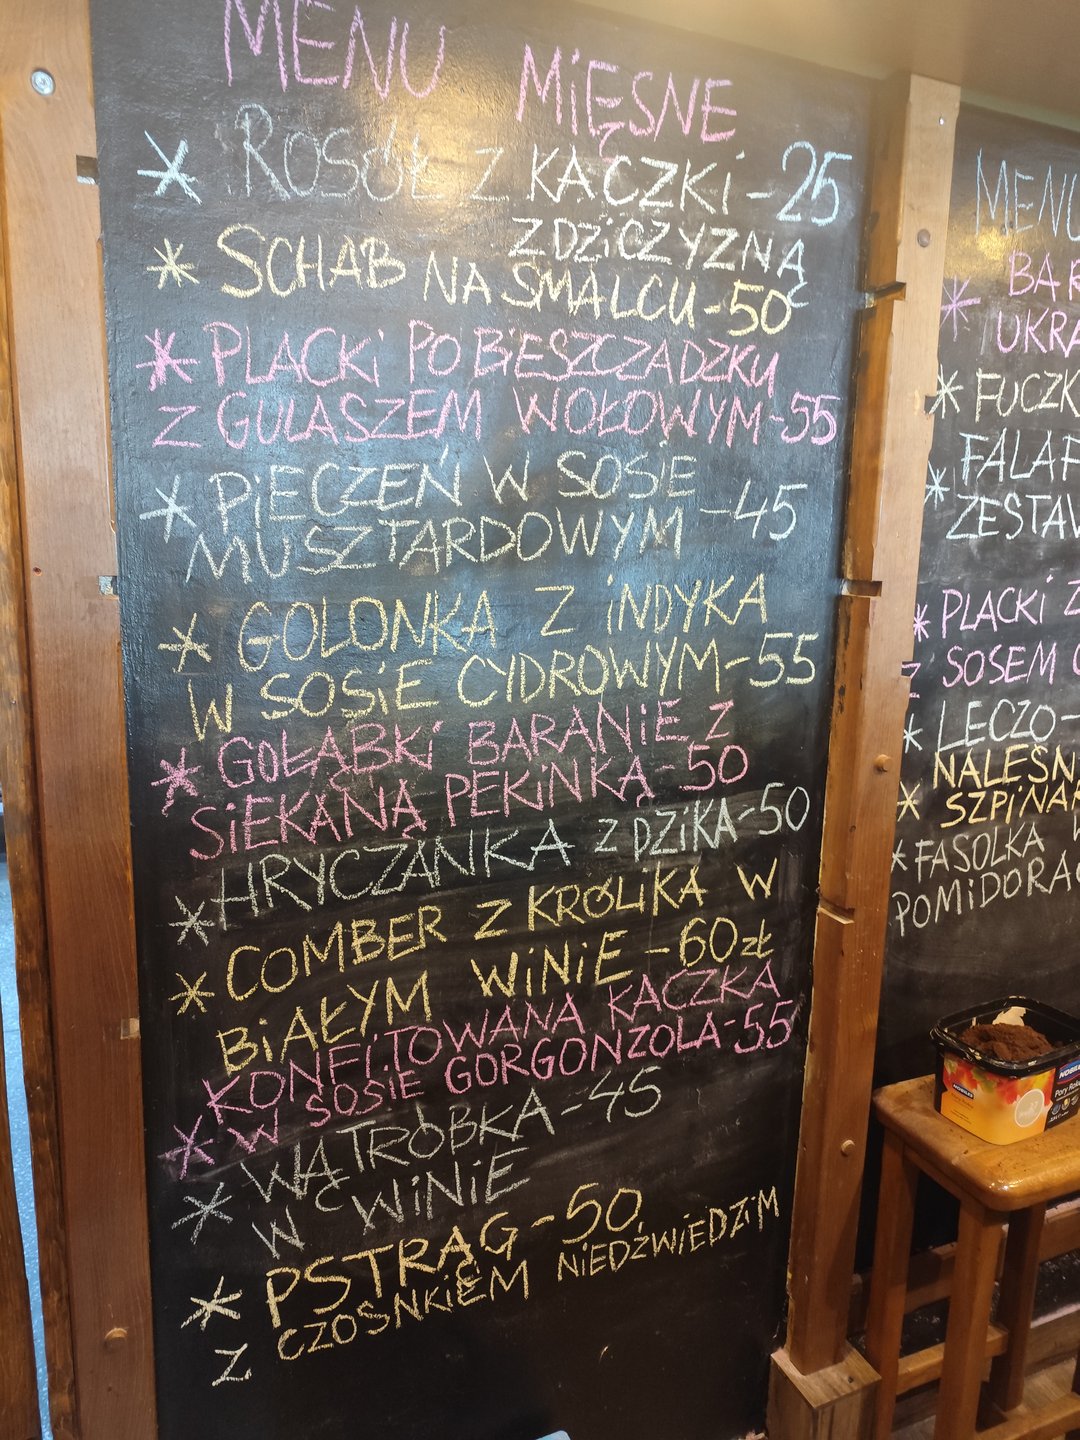 MENU MIĘSNE
* ROSÓŁ Z KACZKI - 25
Z DZICZYZNĄ
* SCHAB NA SMALCU - 50
* PLACKI PO BIESZCZADZKU
Z GULASZEM WOŁOWYM - 55
* PIECZEŃ W SOSIE
MUSZTARDOWYM - 45
* GOLONKA Z INDYKA
W SOSIE CYDROWYM - 55
* GOŁĄBKI BARANIE Z
SIEKANĄ PEKINKĄ - 50
* HRYCZANKA Z DZIKA - 50
* COMBER Z KRÓLIKA W
BIAŁYM WINIE - 60 zł
KONFITOWANA KACZKA
* W SOSIE GORGONZOLA - 55
* WĄTRÓBKA - 45
W WINIE
* PSTRĄG - 50
Z CZOSNKIEM NIEDŹWIEDZIM
MENU
* BAR
UKRA
* FUCZK
* FALAF
ZESTAW
* PLACKI Z
Z SOSEM
* LECZO -
NALEŚN
* SZPINAK
* FASOLKA W
POMIDORAC